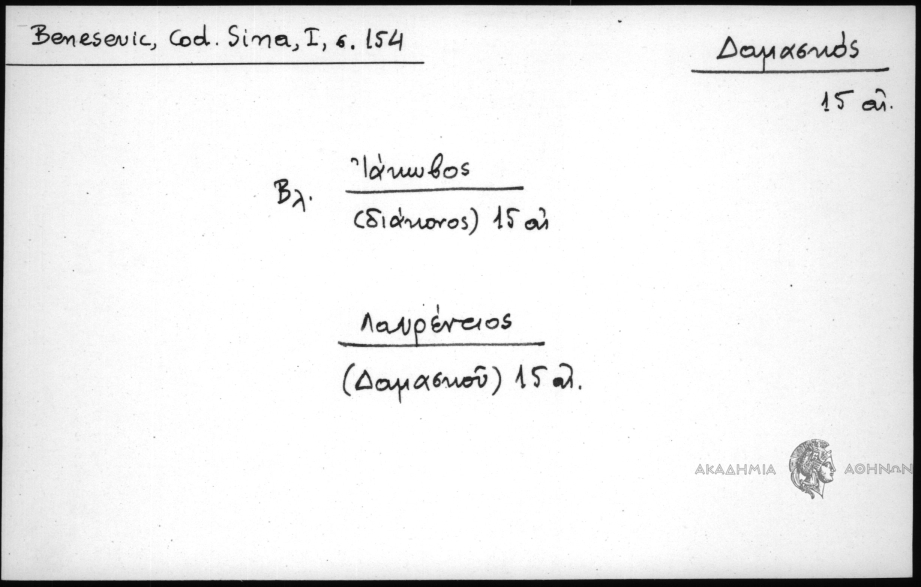 Benesevic, Cod. Sina, I, σ. 154
Δαμασκός
15 αἰ.
Βλ. Ἰάκωβος
(διάκονος) 15 αἰ
Λαυρέντιος
(Δαμασκοῦ) 15 αἰ.
ΑΚΑΔΗΜΙΑ ΑΘΗΝΩΝ